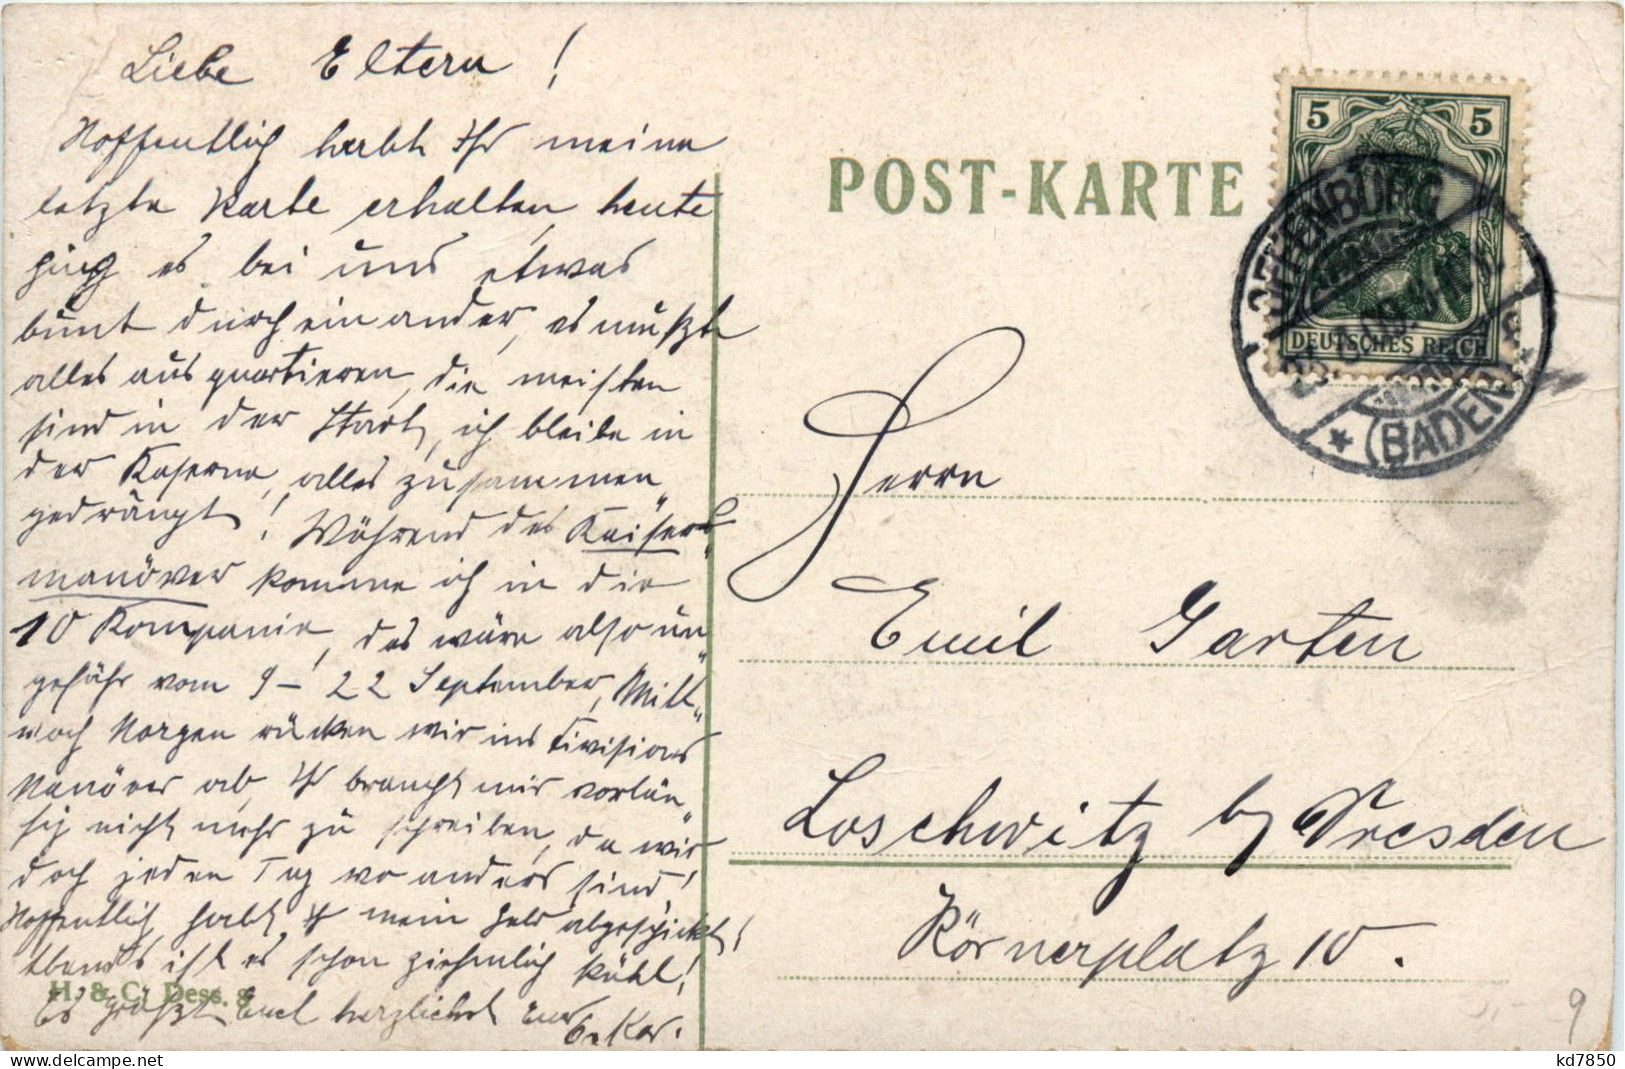 Liebe Eltern!
Hoffentlich habt Ihr meine
letzte Karte erhalten, heute
ging es bei uns etwas
bunt durcheinander, es mußte
alles ausquartieren, die meisten
sind in der Stadt, ich bleibe in
der Kaserne, alles zusammen
gedrängt! Während des Kaiser„
manöver komme ich in die
10 Kompanie, das wäre also un„
gefähr vom 9–22 September, Mitt„
woch Morgen rücken wir ins Divisions
Manöver ab, Ihr braucht mir vorläu„
fig nicht mehr zu schreiben, da wir
doch jeden Tag wo anders sind!
Hoffentlich habt Ihr mein Geld abgeschickt!
Abends ist es schon ziehmlich kühl!
Es grüßt Euch herzlichst Euer
Oskar.
H. & C. Dess. 8
POST-KARTE
5 5
DEUTSCHES REICH
OFFENBURG
(BADEN)
Herrn
Emil Garten
Loschwitz b/ Dresden
Körnerplatz 10.
9
kd7850